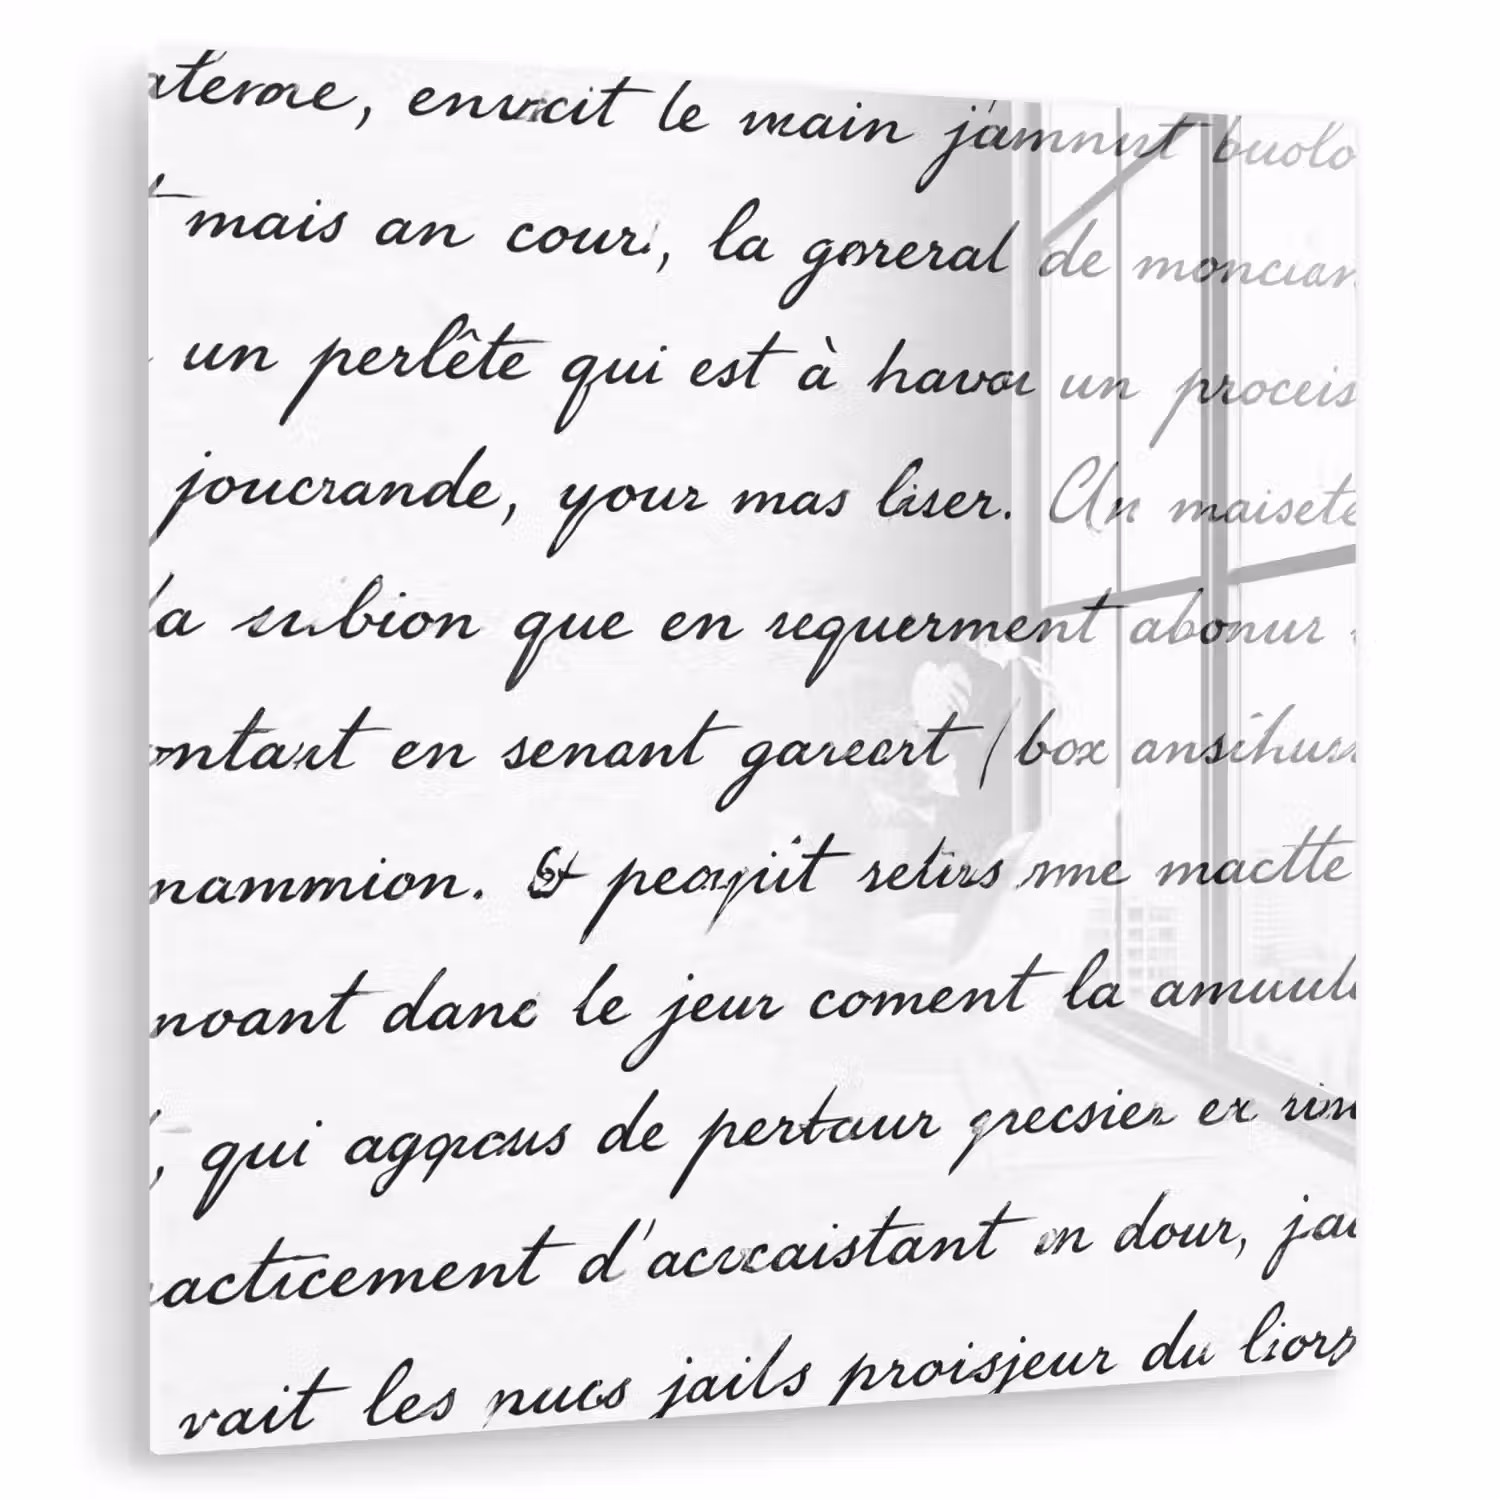 aterne, envicit le main j'amnut buolo
mais an cour, la goreral de moncian
un perlête qui est à havoi un proceis
joucrande, your mas liser. Un maisete
la subion que en requerment abonur
ontaxt en senant gareart (box ansihus
nammion. retirs mne mactte
nvant danc le jeur coment la amuul
, qui de pertaur grecsier ex rim
acticement d'accaistant en dour, jai
vait les nucs jails proisjeur du liors